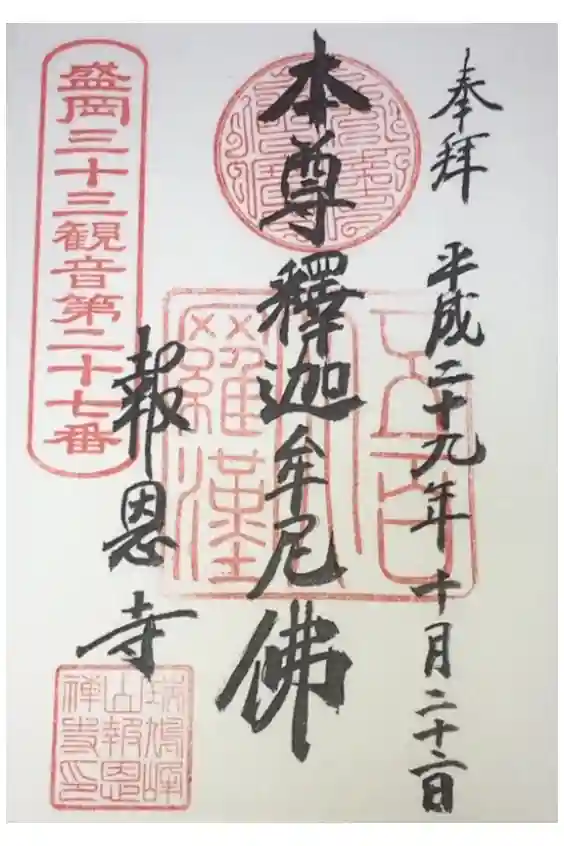 奉拝 平成二十九年十月二十二日
本尊釋迦牟尼佛
報恩寺
盛岡三十三観音第二十七番
五百
羅漢
瑞鳩峰
山報恩
禅寺印